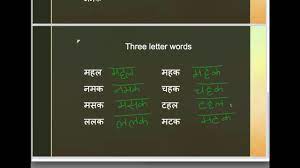 Three letter words
महल महल महक महक
नमक नमक चहक चहक
मसक मसक टहल टहल
ललक ललक मटक मटक